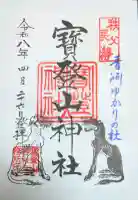 秩父
長瀞
青淵ゆかりの社
寳登山神社
令和八年四月二十七日